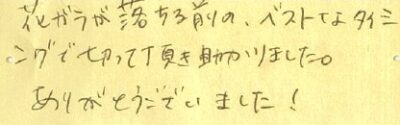 花ガラが落ちる前の、ベストなタイミ
ングで切って頂き助かりました。
ありがとうございました！